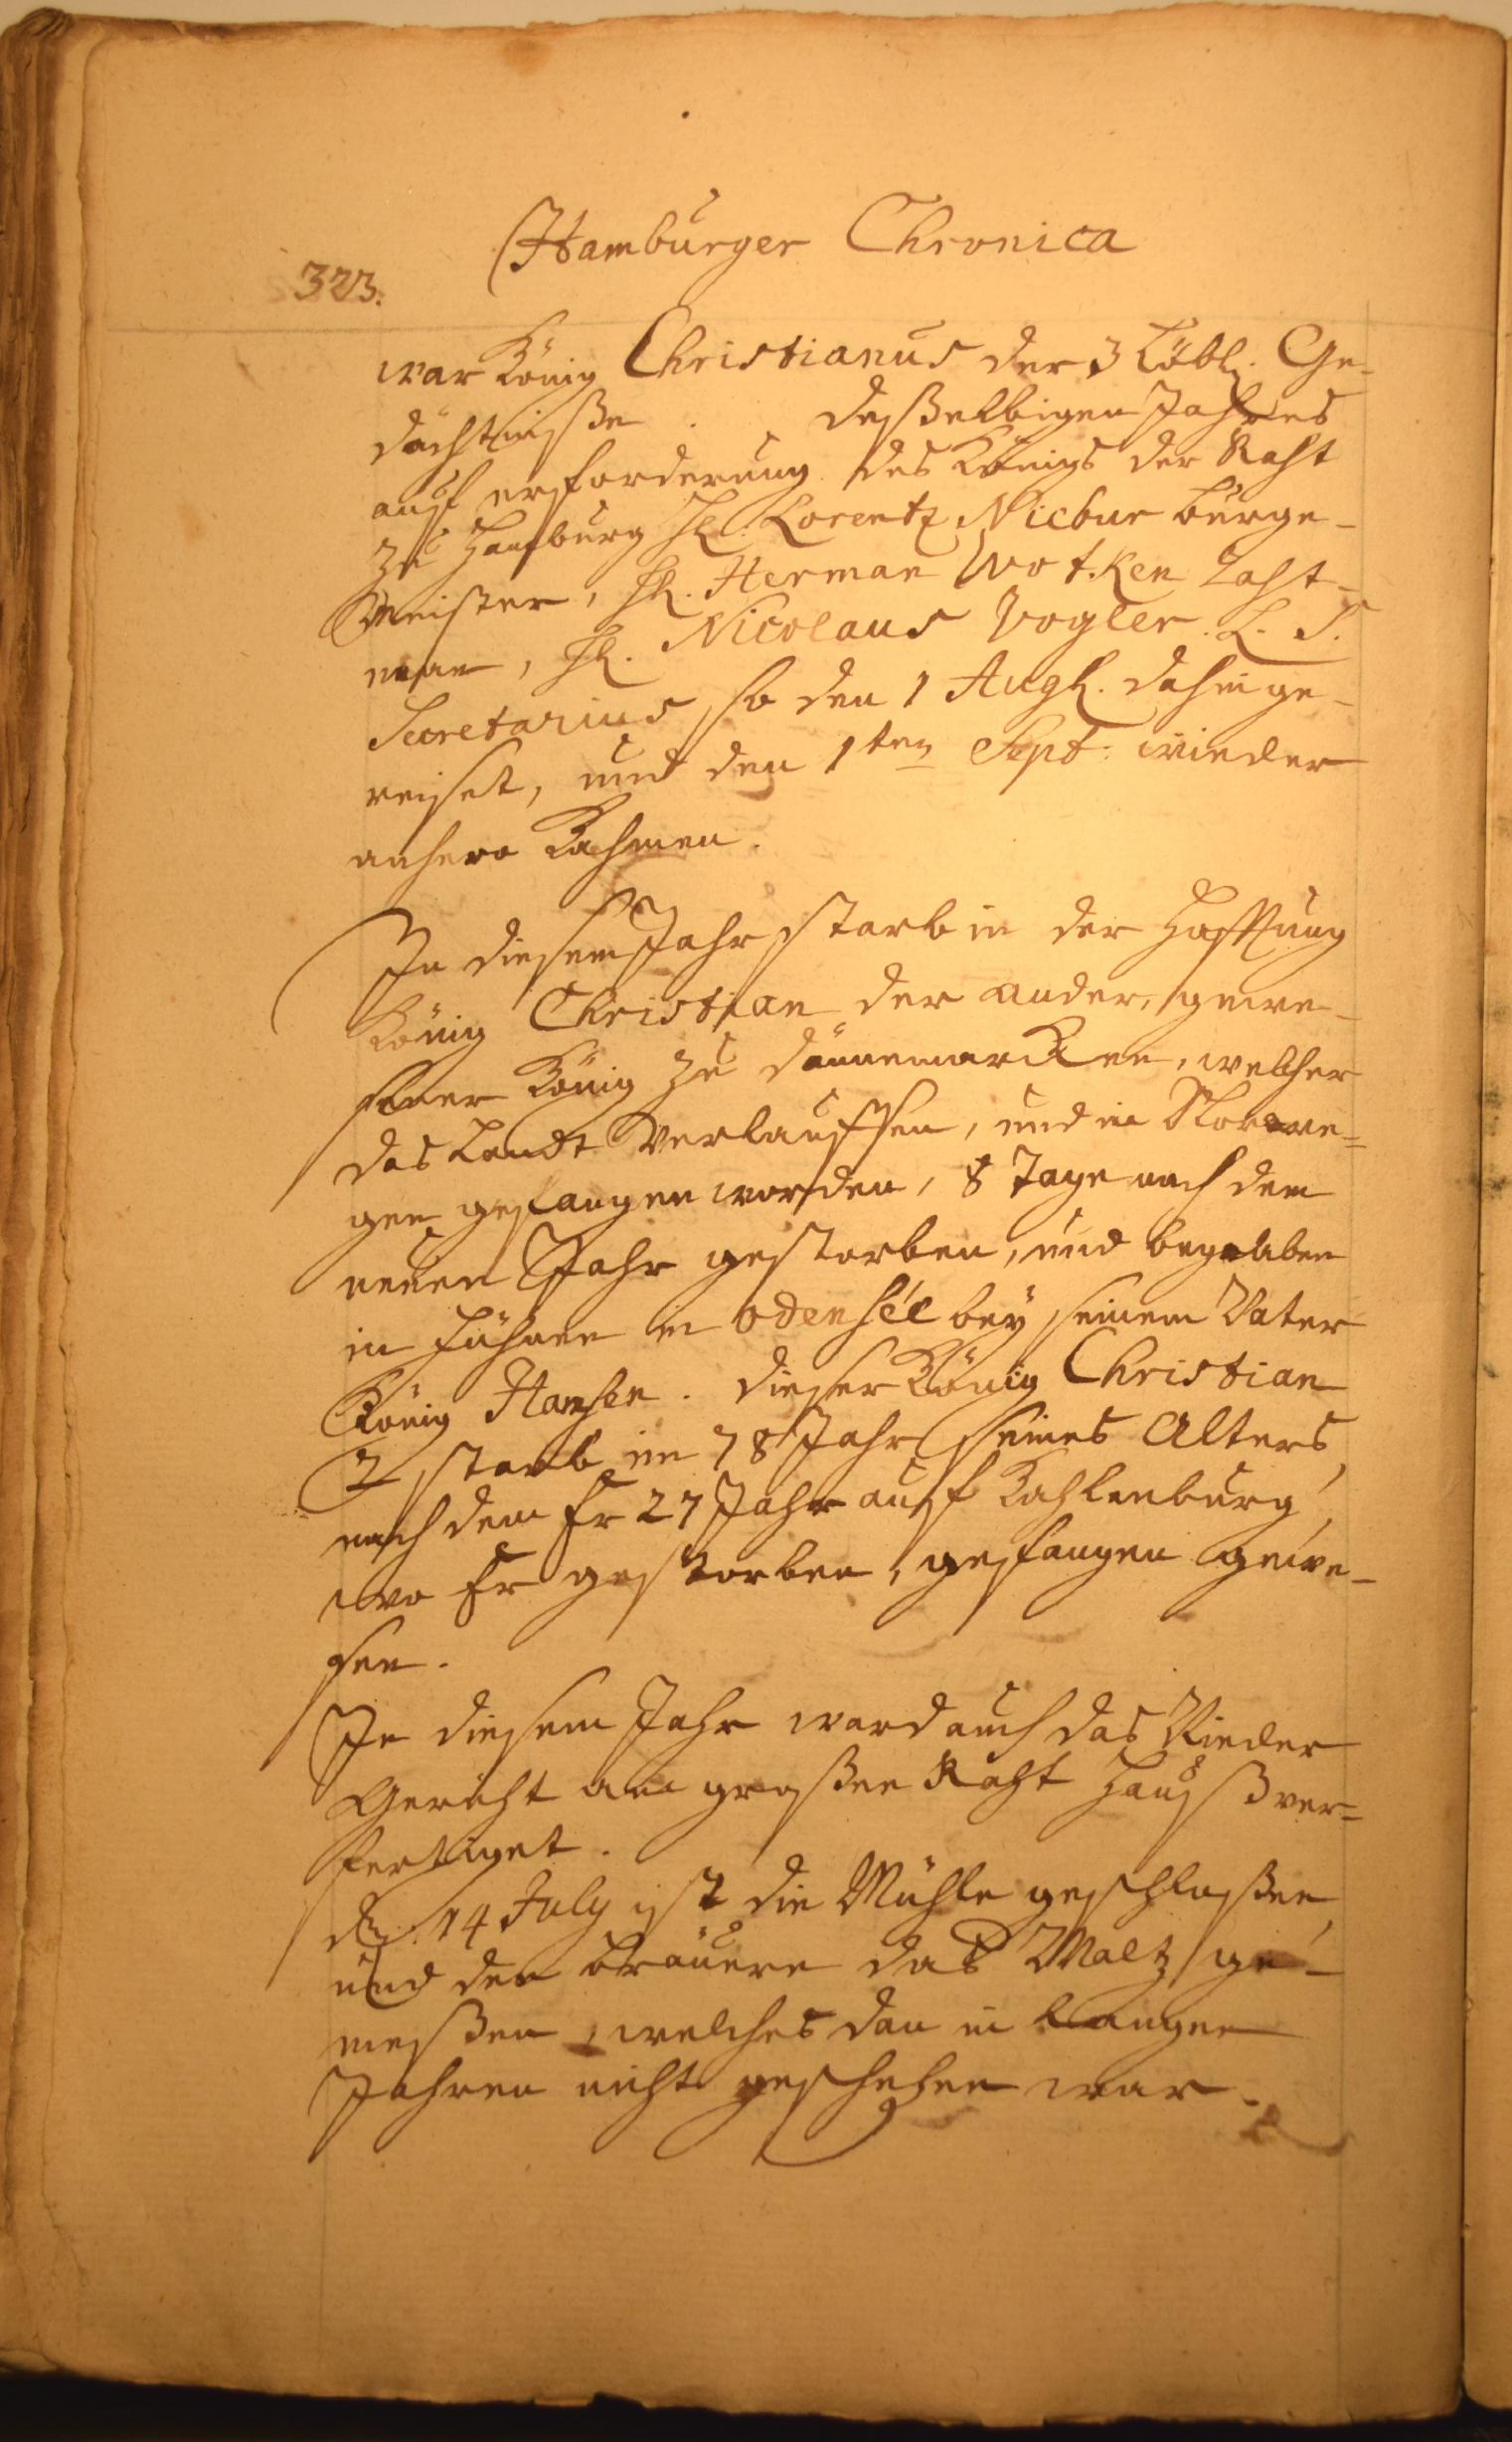 Hamburger Chronica
323.
war König Christianus der 3 Löbl. Ge-
dächtniße. deßelbigen Jahres
auf erforderung des Königs der Raht
zu Hamburg H. Lorentz Niebur bürge-
Meister, H. Herman Wetken Raht-
man, H. Nicolaus Vogler L. S.
Secretarius, so den 1 Aug. dahin ge-
reiset, und den 1ten Sept: wieder
anhero Kahmen.
In diesem Jahr starb in der Hafftung
König Christian der ander, gewe-
sener König zu Dännemarcken, welcher
das Landt verlauffen, und in Norwe-
gen gefangen worden, 8 Tage nach dem
neuen Jahr gestorben, und begraben
in Führen in Odensée bey seinem Vater
König Hansen. dieser König Christian
2 starb im 78 Jahr seines Alters,
nach dem Er 27 Jahr auf Kahlenburg,
wo Er gestorben, gefangen gewe-
sen.
In diesem Jahr ward auch das Nieder
Gericht am großen Raht Hauß ver-
fertiget.
d. 14 July ist die Mühle geschloßen,
und den Bräuern das Maltz ge-
meßen, welches dan in langen
Jahren nicht geschehen war.